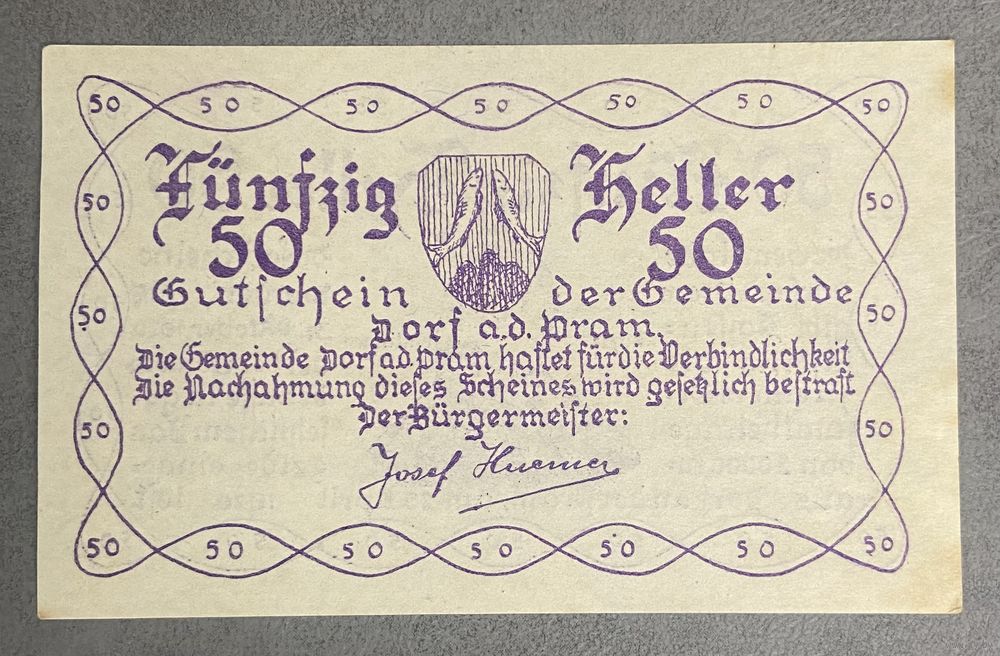 50 50 50 50 50 50 50
Fünfzig Heller
50 50
50 50
Gutschein der Gemeinde
50 50
Dorf a.d. Pram.
Die Gemeinde Dorf a.d. Pram haftet für die Verbindlichkeit
Die Nachahmung dieses Scheines wird gesetzlich bestraft
Der Bürgermeister:
50 50
Josef Huemer
50 50 50 50 50 50 50